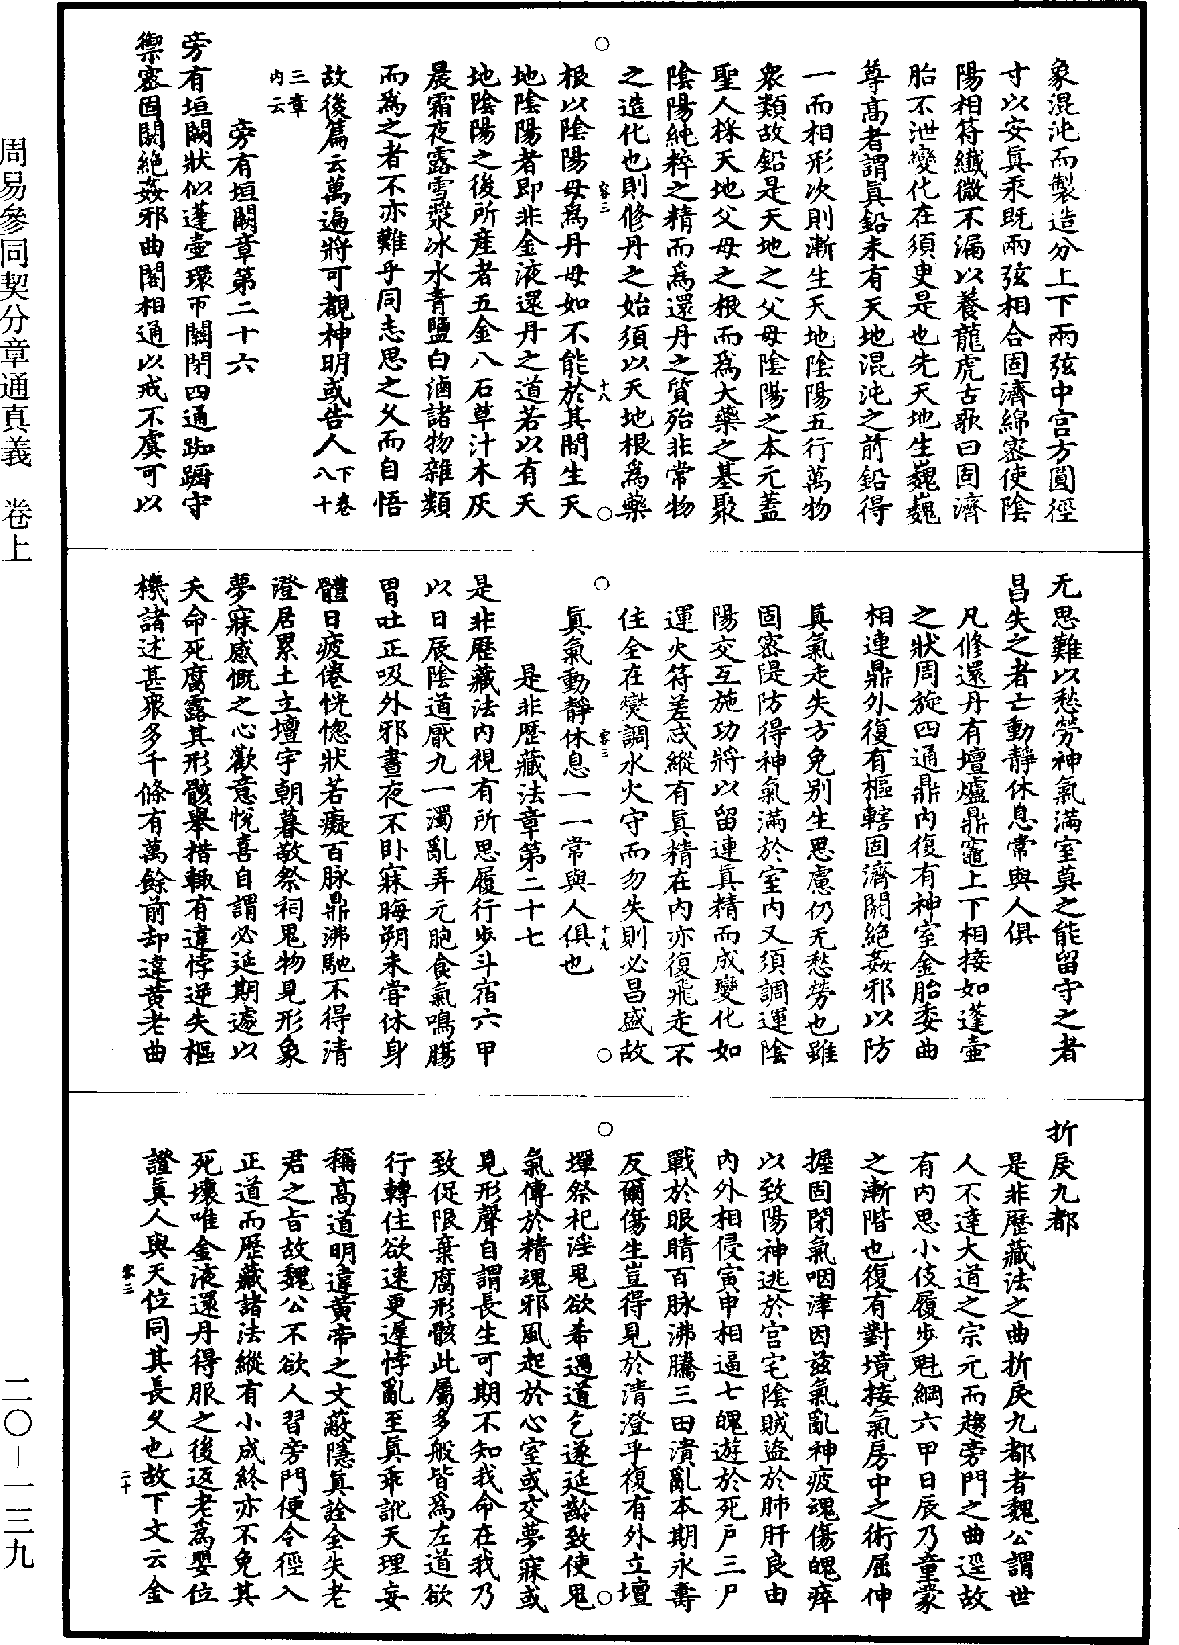 象混沌而製造分上下兩弦中宮方圓徑
寸以安真汞既兩弦相合固濟綿密使陰
陽相符纖微不漏以養龍虎古歌曰固濟
胎不泄變化在須臾是也先天地生巍巍
尊高者謂真鉛未有天地混沌之前鉛得
一而相形次則漸生天地陰陽五行萬物
衆類故鉛是天地之父母陰陽之本元蓋
聖人採天地父母之根而為大藥之基聚
陰陽純粹之精而為還丹之質殆非常物
之造化也則修丹之始須以天地根為藥
容三 十八
根以陰陽母為丹母如不能於其間生天
地陰陽者即非金液還丹之道若以有天
地陰陽之後所產者五金八石草汁木灰
晨霜夜露雪漿冰水青鹽白滷諸物雜類
而為之者不亦難乎同志思之久而自悟
故後篇云萬遍將可觀神明或告人下卷八十
三章內云
旁有垣闕章第二十六
旁有垣闕狀似蓬壺環帀關閉四通踟躕守
禦密固闕絕姦邪曲閣相通以戒不虞可以
无思難以愁勞神氣滿室莫之能留守之者
昌失之者亡動靜休息常與人俱
凡修還丹有壇爐鼎竈上下相接如蓬壺
之狀周旋四通鼎內復有神室金胎委曲
相連鼎外復有樞轄固濟關絕姦邪以防
真氣走失方免別生思慮仍无愁勞也雖
固密隄防得神氣滿於室內又須調運陰
陽交互施功將以留連真精而成變化如
運火符差忒縱有真精在內亦復飛走不
住全在燮調水火守而勿失則必昌盛故
容三 十九
真氣動靜休息一一常與人俱也
是非歷藏法章第二十七
是非歷藏法內視有所思履行步斗宿六甲
以日辰陰道厭九一濁亂弄元胞食氣鳴腸
胃吐正吸外邪晝夜不臥寐晦朔未嘗休身
體日疲倦恍惚狀若癡百脉鼎沸馳不得清
澄居累土立壇宇朝暮敬祭祠鬼物見形象
夢寐感慨之心歡意悅喜自謂必延期遽以
夭命死腐露其形骸舉措輙有違悖逆失樞
機諸述甚衆多千條有萬餘前却違黃老曲
折戾九都
是非歷藏法之曲折戾九都者魏公謂世
人不達大道之宗元而趨旁門之曲逕故
有內思小伎履步魁綱六甲日辰乃童蒙
之漸階也復有對境接氣房中之術屈伸
握固閉氣咽津因茲氣亂神疲魂傷魄瘁
以致陽神逃於宮宅陰賊盜於肺肝良由
內外相侵寅申相逼七魄遊於死户三尸
戰於眼睛百脉沸騰三田潰亂本期永壽
反爾傷生豈得見於清澄乎復有外立壇
墠祭祀淫鬼欲希遇道乞遂延齡致使鬼
氣傳於精魂邪風起於心室或交夢寐或
見形聲自謂長生可期不知我命在我乃
致促限棄腐形骸此屬多般皆為左道欲
行轉住欲速更遲悖亂至真乖訛天理妄
稱高道明違黃帝之文蔽隱真詮全失老
君之旨故魏公不欲人習旁門便令徑入
正道而歷藏諸法縱有小成終亦不免其
死壞唯金液還丹得服之後返老為嬰位
證真人與天位同其長久也故下文云金
容三 二十
周易參同契分章通真義 卷上
二〇—一三九